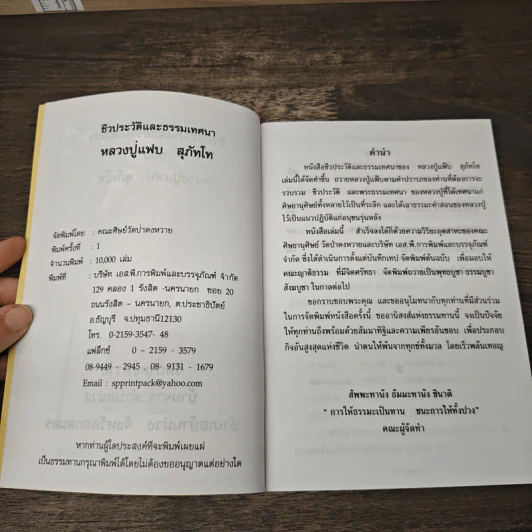 ชีวประวัติและธรรมเทศนา
หลวงปู่แฟบ สุภัทโท
จัดพิมพ์โดย : คณะศิษย์วัดป่าดงหวาย
พิมพ์ครั้งที่ : 1
จำนวนพิมพ์ : 10,000 เล่ม
พิมพ์ที่ : บริษัท เอส.พี.การพิมพ์และบรรจุภัณฑ์ จำกัด
129 คลอง 1 รังสิต -นครนายก ซอย 20
ถนนรังสิต – นครนายก, ต.ประชาธิปัตย์
อ.ธัญบุรี จ.ปทุมธานี12130
โทร. 0-2159-3547- 48
แฟล็กซ์ 0 – 2159 - 3579
08-9449 - 2945 , 08- 9131 - 1679
Email : spprintpack@yahoo.com
หากท่านผู้ใดประสงค์ที่จะพิมพ์เผยแผ่
เป็นธรรมทานกรุณาพิมพ์ได้โดยไม่ต้องขออนุญาตแต่อย่างใด
คำนำ
หนังสือชีวประวัติและธรรมเทศนาของ หลวงปู่แฟบ สุภัทโท
เล่มนี้ได้จัดทำขึ้น ถวายหลวงปู่แฟบตามคำปรารภของท่านที่ต้องการจะ
รวบรวม ชีวประวัติ และพระธรรมเทศนา ของหลวงปู่ที่ได้เทศนาแก่
ศิษยานุศิษย์ทั้งหลายไว้เป็นที่ระลึก และได้เอาธรรมะคำสอนของหลวงปู่
ไว้เป็นแนวปฏิบัติแก่อนุชนรุ่นหลัง
หนังสือเล่มนี้ สำเร็จลงได้ก็ด้วยความวิริยะอุตสาหะของคณะ
ศิษยานุศิษย์ วัดป่าดงหวายและบริษัท เอส.พี.การพิมพ์และบรรจุภัณฑ์
จำกัด ซึ่งได้ดำเนินการตั้งแต่บันทึกเทป จัดพิมพ์ต้นฉบับ เพื่อมอบให้
คณะญาติธรรม ที่มีจิตศรัทธา จัดพิมพ์ถวายเป็นพุทธบูชา ธรรมบูชา
สังฆบูชา ในกาลต่อไป
ขอกราบขอบพระคุณ และขออนุโมทนากับทุกท่านที่มีส่วนร่วม
ในการจัดพิมพ์หนังสือครั้งนี้ ขออานิสงส์แห่งธรรมทานนี้ จงเป็นปัจจัย
ให้ทุกท่านถึงพร้อมด้วยสัมมาทิฐิและความเพียรอันชอบ เพื่อประกอบ
กิจอันสูงสุดแห่งชีวิต นำตนให้พ้นจากทุกข์ทั้งมวล โดยเร็วพลันเทอญ
สัพพะทานัง ธัมมะทานัง ชินาติ
“ การให้ธรรมะเป็นทาน ชนะการให้ทั้งปวง”
คณะผู้จัดทำ